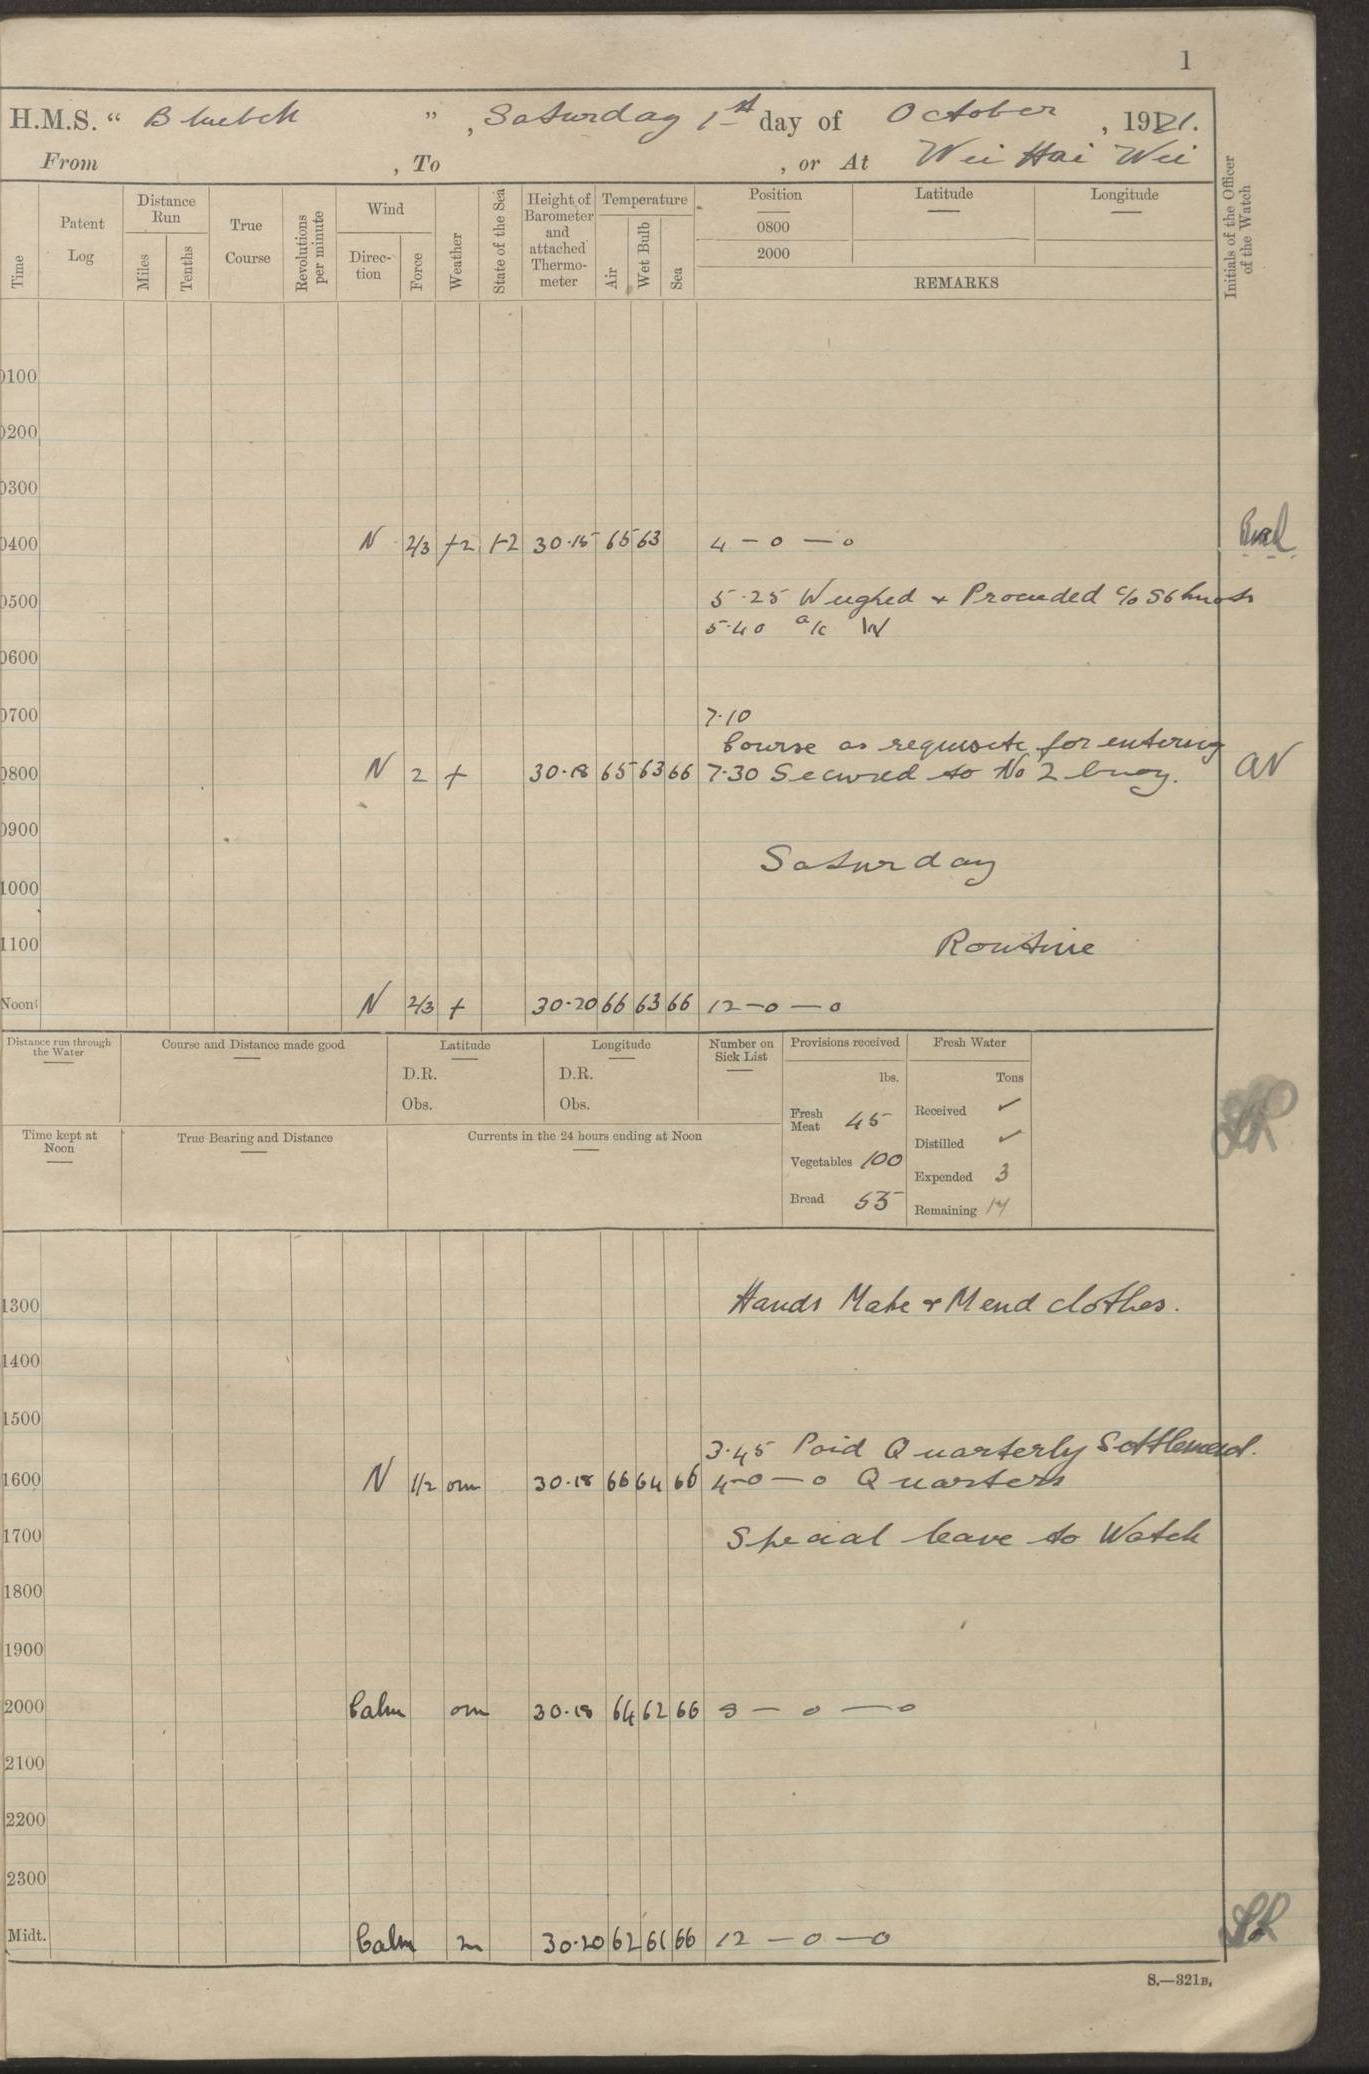 1
H.M.S. " Bluebell ", Saturday 1st day of October, 1921.
From , To , or At Wei Hai Wei
Time
Patent Log
Distance Run
Miles
Tenths
True Course
Revolutions per minute
Wind
Direc-tion
Force
Weather
State of the Sea
Height of Barometer and attached Thermo-meter
Temperature
Air
Wet Bulb
Sea
Position
Latitude
Longitude
0800
2000
REMARKS
Initials of the Officer of the Watch
0100
0200
0300
0400 N 2/3 1-2 30·15 65 63 4 — 0 — 0
0500 5·25 Weighed & Proceeded c/o S6 knots
5·40 a/c W
0600
0700 7·10
Course as requisite for entering
0800 N 2 + 30·18 65 63 66 7·30 Secured to No 2 buoy. AN
0900
Saturday
1000
1100 Routine
Noon N 2/3 + 30·20 66 63 66 12 — 0 — 0
Distance run through the Water
Course and Distance made good
Latitude
D.R.
Obs.
Longitude
D.R.
Obs.
Number on Sick List
Provisions received
lbs.
Fresh Meat 45
Vegetables 100
Bread 55
Fresh Water
Tons
Received ✓
Distilled ✓
Expended 3
Remaining 14
Time kept at Noon
True Bearing and Distance
Currents in the 24 hours ending at Noon
1300 Hands Make & Mend clothes.
1400
1500
3·45 Paid Quarterly Settlement.
1600 N 1/2 om 30·18 66 64 66 4 — 0 — 0 Quarters
1700 Special leave to Watch
1800
1900
2000 Calm om 30·18 64 62 66 8 — 0 — 0
2100
2200
2300
Midt. Calm m 30·20 62 61 66 12 — 0 — 0
S.—321B.